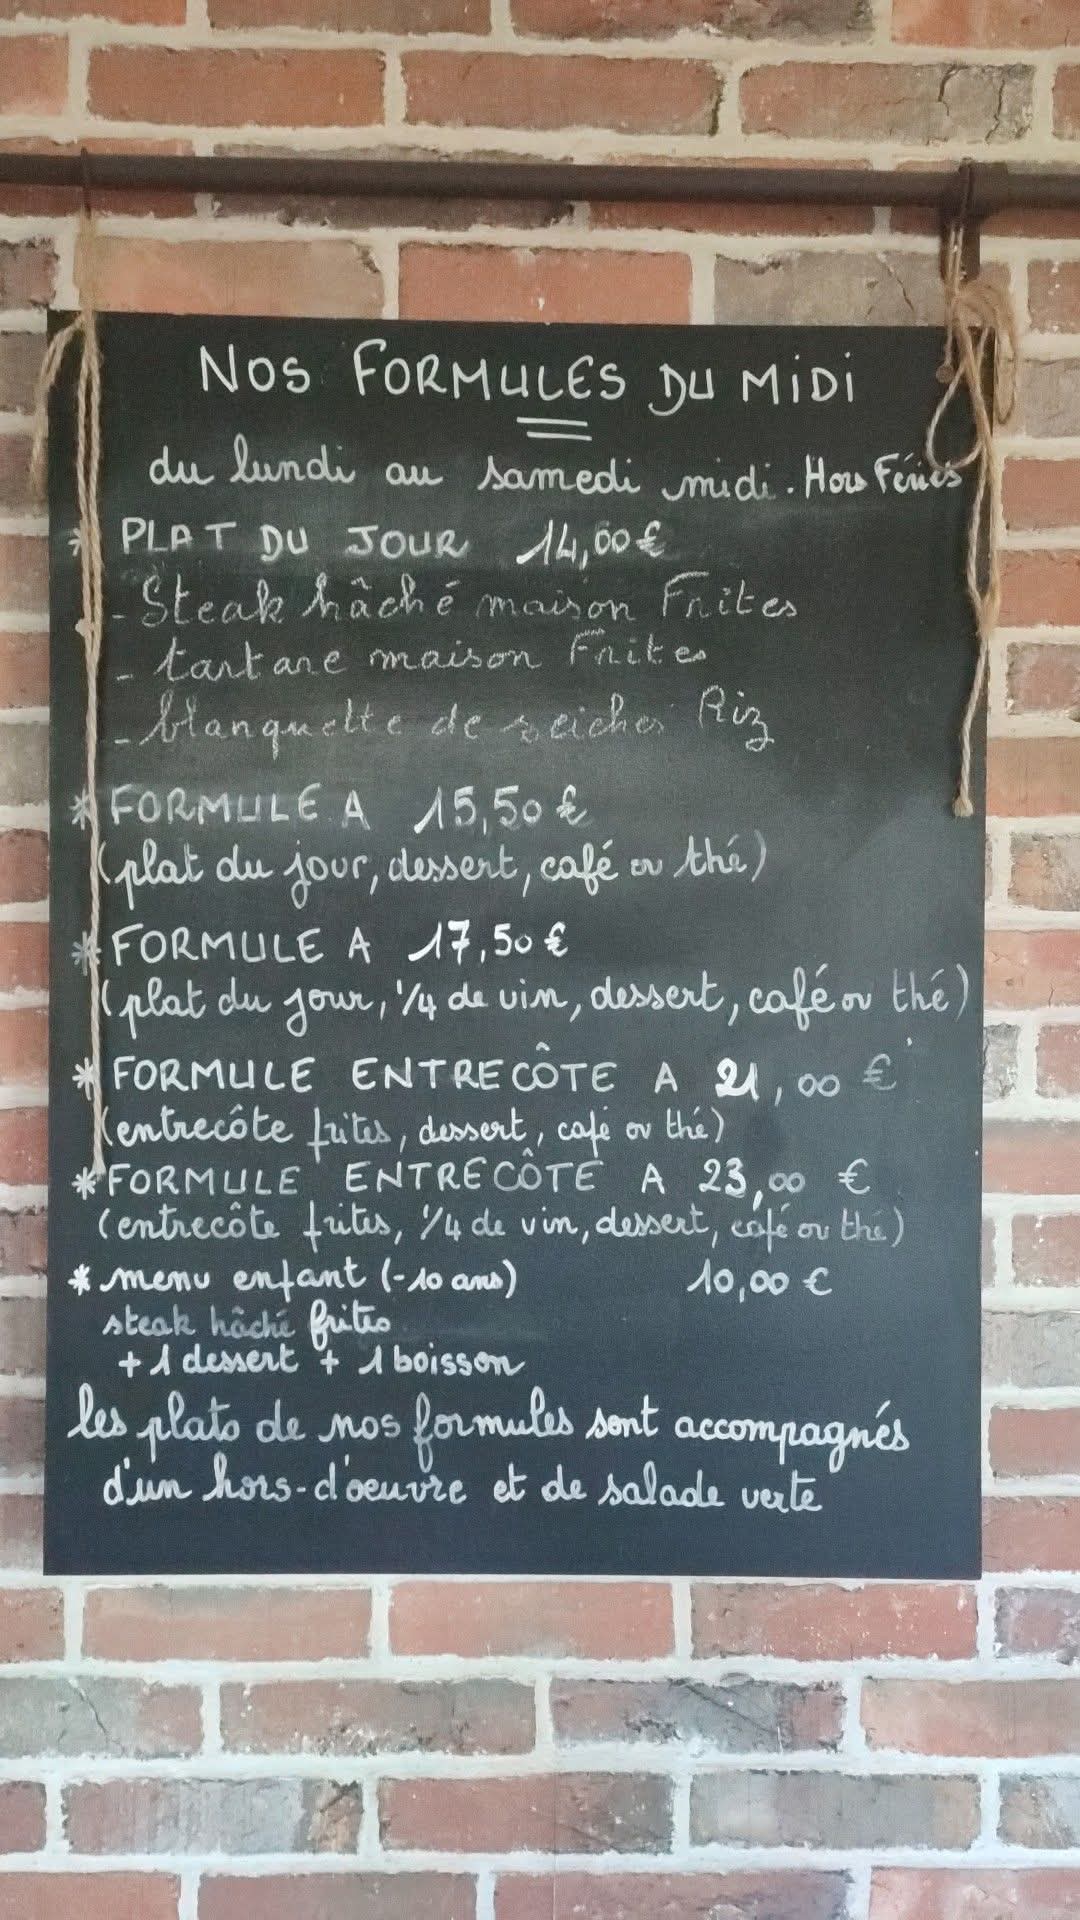 NOS FORMULES DU MiDi
du lundi au samedi midi. Hors Fériés
* PLAT DU JOUR 14,00 €
- Steak hâché maison Frites
- tartare maison Frites
- blanquette de seiches Riz
* FORMULE A 15,50 €
(plat du jour, dessert, café ou thé)
* FORMULE A 17,50 €
(plat du jour, 1/4 de vin, dessert, café ou thé)
* FORMULE ENTRECÔTE A 21,00 €
(entrecôte frites, dessert, café ou thé)
* FORMULE ENTRECÔTE A 23,00 €
(entrecôte frites, 1/4 de vin, dessert, café ou thé)
* menu enfant (-10 ans) 10,00 €
steak hâché frites
+ 1 dessert + 1 boisson
les plats de nos formules sont accompagnés
d'un hors-d'oeuvre et de salade verte